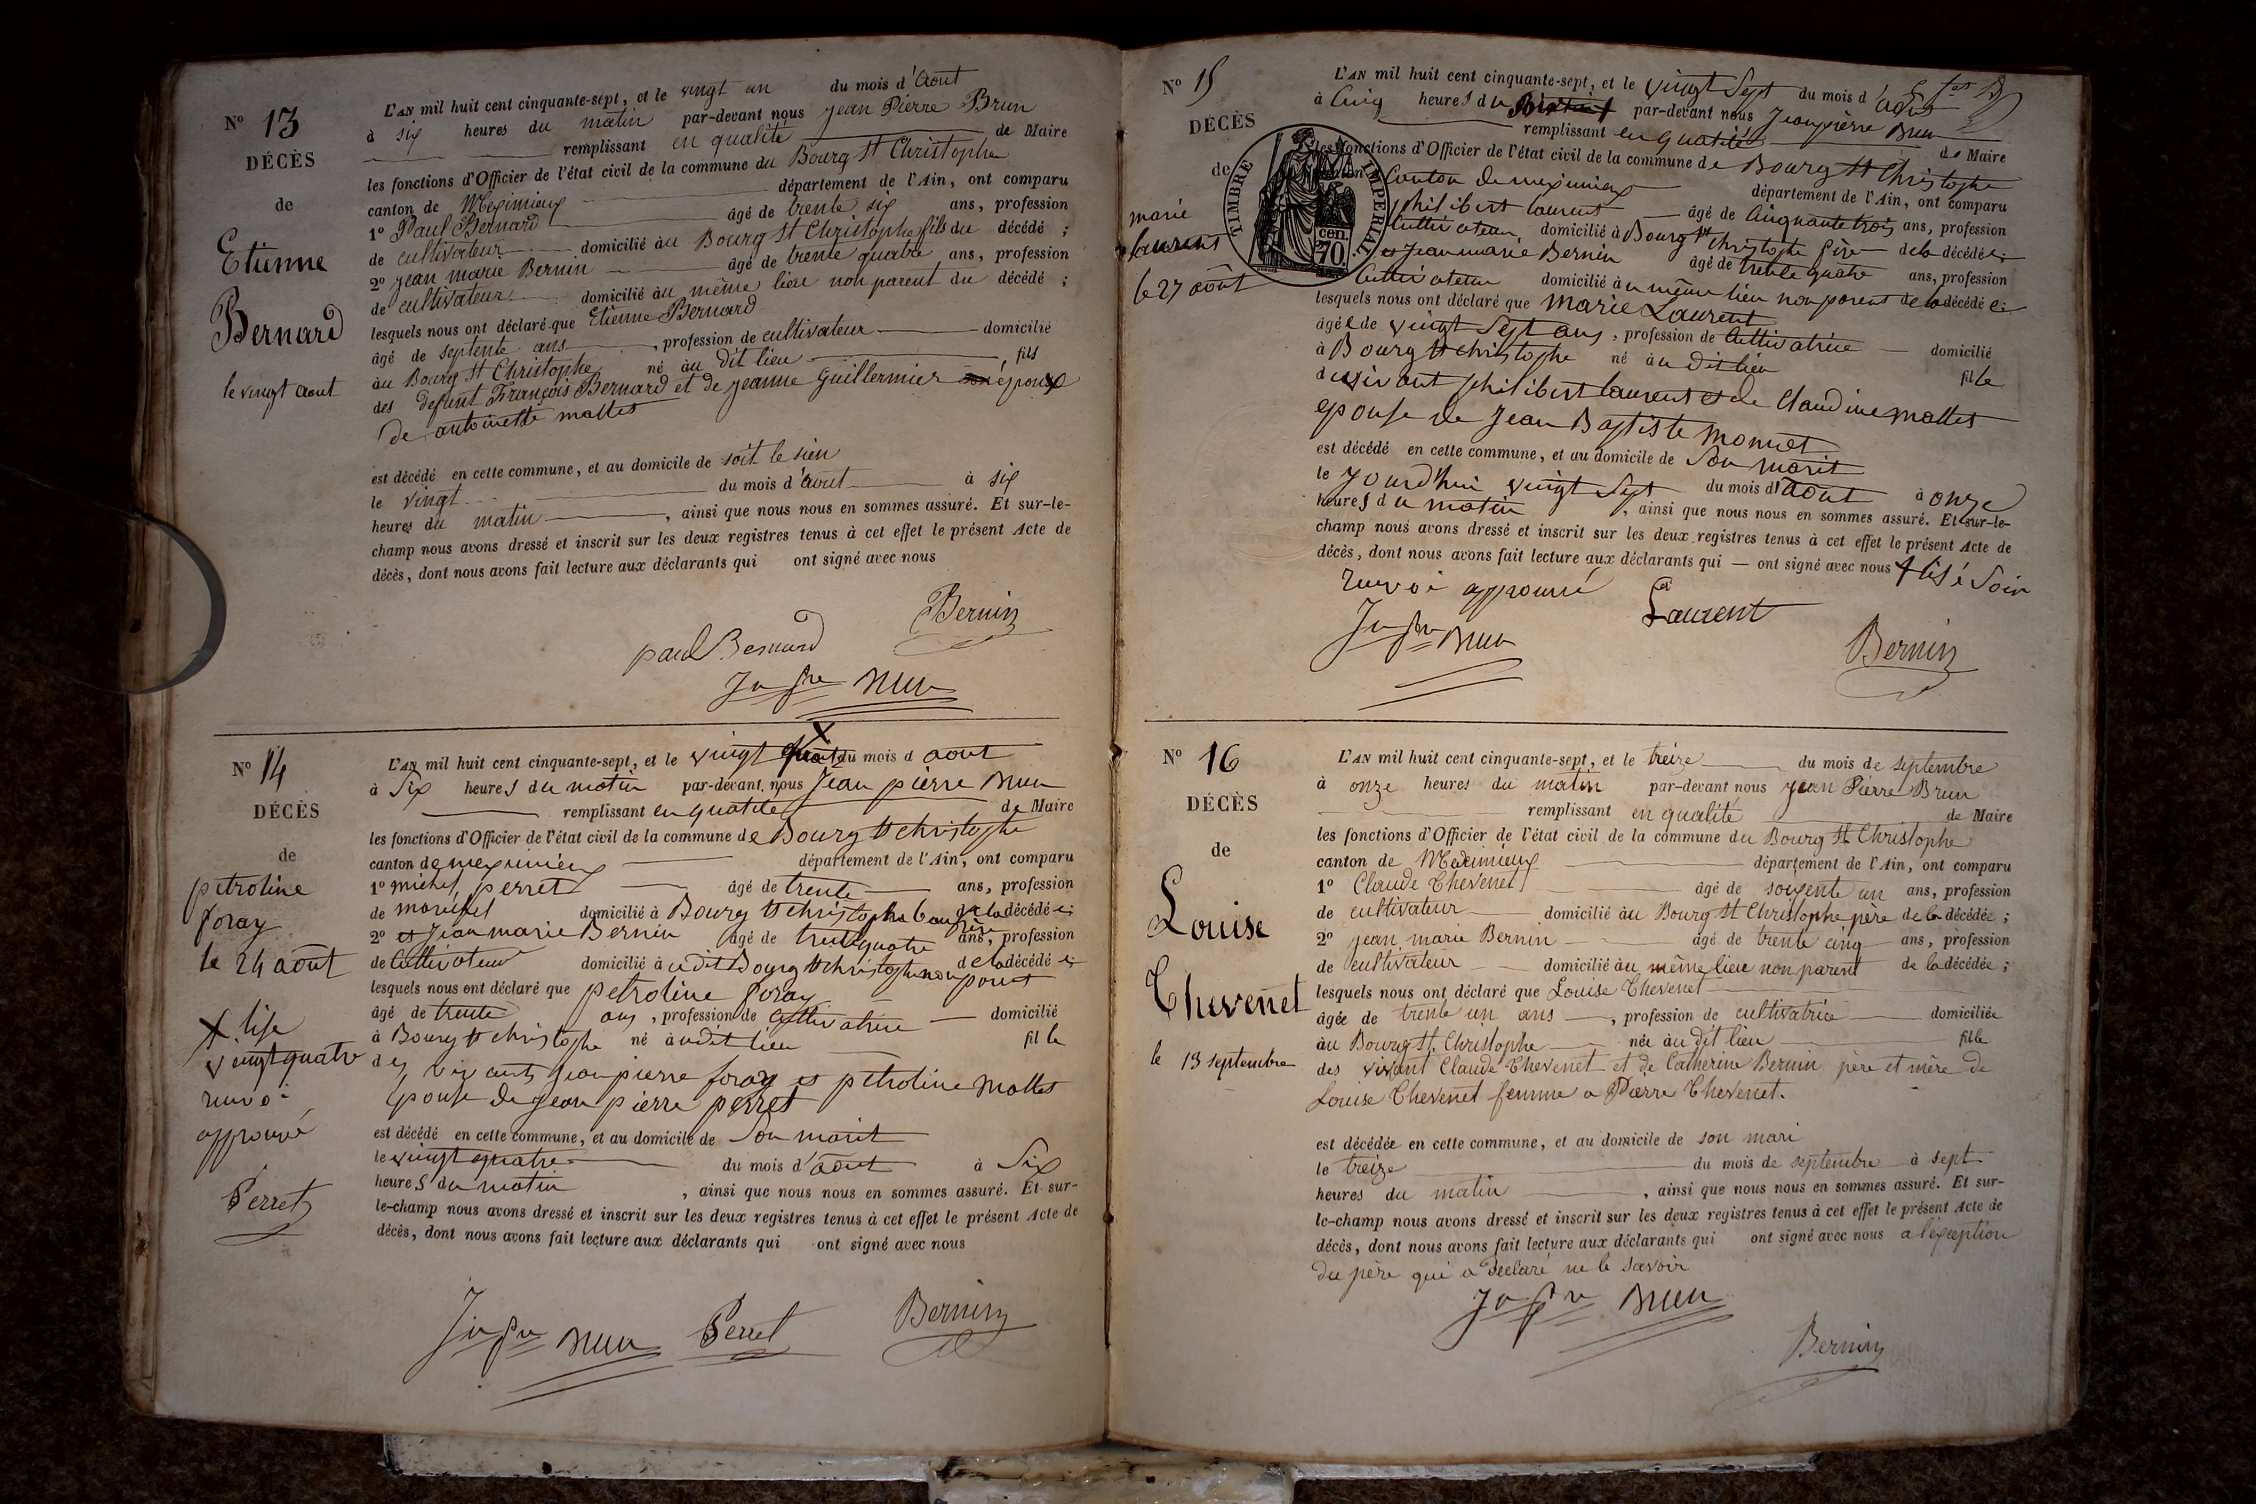 N° 13
DÉCÈS
de
Etienne
Bernard
le vingt aout
L'AN mil huit cent cinquante-sept, et le vingt un du mois d'Aout
à six heures du matin par-devant nous jean Pierre Brun
remplissant en qualité de Maire
les fonctions d'Officier de l'état civil de la commune du Bourg St Christophe
canton de Meximieux département de l'Ain, ont comparu
1° Paul Bernard âgé de trente six ans, profession
de cultivateur domicilié àu Bourg St Christophe fils du décédé ;
2° jean marie Bernin âgé de trente quatre ans, profession
de cultivateur domicilié àu même lieu non parent du décédé ;
lesquels nous ont déclaré que Etienne Bernard
âgé de septente ans, profession de cultivateur domicilié
àu Bourg St Christophe né àu dit lieu, fils
des defunt François Bernard et de jeanne Guillermier époux
de antoinette mattes
est décédé en cette commune, et au domicile de soit le sien
le vingt du mois d'aout à six
heures du matin, ainsi que nous nous en sommes assuré. Et sur-le-
champ nous avons dressé et inscrit sur les deux registres tenus à cet effet le présent Acte de
décès, dont nous avons fait lecture aux déclarants qui ont signé avec nous
Bernin
paul Bernard
Brun
N° 14
DÉCÈS
de
petroline
foray
le 24 août
X lise
vingt quatre
renvoi
approuvé
Perret
L'AN mil huit cent cinquante-sept, et le vingt quatre X du mois d aout
à Six heures du matin par-devant nous Jean pierre Brun
remplissant en qualité de Maire
les fonctions d'Officier de l'état civil de la commune de Bourg St christophe
canton de meximieux département de l'Ain, ont comparu
1° michel perret âgé de trente ans, profession
de domicilié à Bourg St christophe beau frère de la décédée ;
2° et Jean marie Bernin âgé de trente quatre ans, profession
de Cultivateur domicilié à udit Bourg St christophe non parent de la décédée ;
lesquels nous ont déclaré que petroline foray
âgé de trente ans, profession de Cultivatrice domicilié
à Bourg St christophe né à udit lieu fille
des vivants Jean pierre foray et petroline Mattes
Epouse de Jean pierre perret
est décédé en cette commune, et au domicile de Son marit
le vingt quatre du mois d'aout à Six
heures du matin, ainsi que nous nous en sommes assuré. Et sur-
le-champ nous avons dressé et inscrit sur les deux registres tenus à cet effet le présent Acte de
décès, dont nous avons fait lecture aux déclarants qui ont signé avec nous
Brun Perret Bernin
N° 15
DÉCÈS
de
marie
laurent
le 27 août
TIMBRE IMPÉRIAL
70 cen.
L'AN mil huit cent cinquante-sept, et le vingt Sept du mois d'août
à Cinq heures du par-devant nous Jean pierre Brun
remplissant en qualité de Maire
les fonctions d'Officier de l'état civil de la commune de Bourg St Christophe
Canton de meximieux département de l'Ain, ont comparu
philibert laurent âgé de Cinquante trois ans, profession
Cultivateur domicilié à Bourg St christophe père de la décédée ;
et Jean marie Bernin âgé de trente quatre ans, profession
Cultivateur domicilié àu même lieu non parent de la décédée ;
lesquels nous ont déclaré que Marie Laurent
âgée de vingt Sept ans, profession de Cultivatrice domicilié
à Bourg St christophe né àu dit lieu fille
du vivant philibert laurent et de Claudine mattes
epouse de Jean Baptiste Monnet
est décédé en cette commune, et au domicile de Son marit
le Jourd'hui vingt Sept du mois d'aout à onze
heures du matin, ainsi que nous nous en sommes assuré. Et sur-le-
champ nous avons dressé et inscrit sur les deux registres tenus à cet effet le présent Acte de
décès, dont nous avons fait lecture aux déclarants qui — ont signé avec nous X lisé Soir
renvoi approuvé
Laurent
Brun
Bernin
N° 16
DÉCÈS
de
Louise
Thevenet
le 13 septembre
L'AN mil huit cent cinquante-sept, et le treize du mois de septembre
à onze heures du matin par-devant nous jean Pierre Brun
remplissant en qualité de Maire
les fonctions d'Officier de l'état civil de la commune du Bourg St Christophe
canton de Meximieux département de l'Ain, ont comparu
1° Claude Thevenet âgé de soixente un ans, profession
de cultivateur domicilié àu Bourg St Christophe père de la décédée ;
2° jean marie Bernin âgé de trente cinq ans, profession
de cultivateur domicilié àu même lieu non parent de la décédée ;
lesquels nous ont déclaré que Louise Thevenet
âgée de trente un ans, profession de cultivatrice domiciliée
àu Bourg St Christophe née àu dit lieu fille
des vivant Claude Thevenet et de Catherine Bernin père et mère de
Louise Thevenet femme a Pierre Thevenet.
est décédée en cette commune, et au domicile de son mari
le treize du mois de septembre à sept
heures du matin, ainsi que nous nous en sommes assuré. Et sur-
le-champ nous avons dressé et inscrit sur les deux registres tenus à cet effet le présent Acte de
décès, dont nous avons fait lecture aux déclarants qui ont signé avec nous a l'exception
du père qui a déclaré ne le savoir
Brun
Bernin